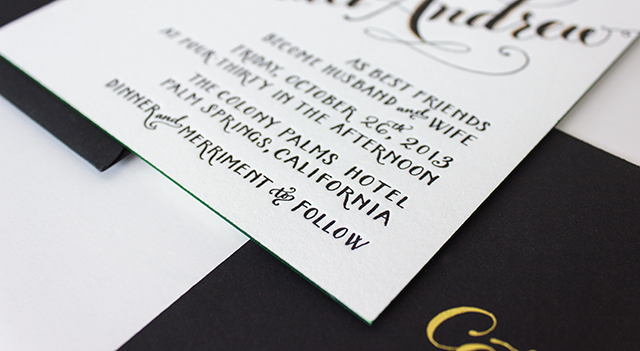 Andrew
AS BEST FRIENDS
BECOME HUSBAND and WIFE
FRIDAY, OCTOBER 26th, 2013
AT FOUR THIRTY IN THE AFTERNOON
THE COLONY PALMS HOTEL
PALM SPRINGS, CALIFORNIA
DINNER and MERRIMENT to FOLLOW